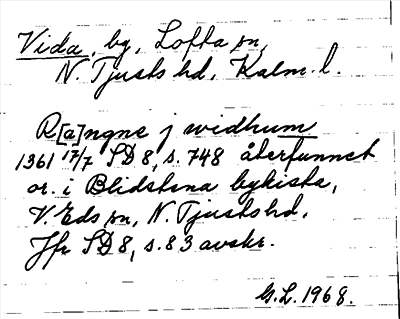 Vida, by, Lofta sn,
N. Tjusts hd, Kalm. l.
R[a]ngne j widhum
1361 17/7 SD 8, s. 748 återfunnet
or. i Blidstena bykista,
V. Eds sn, N. Tjusts hd.
Jfr SD 8, s. 83 avskr.
G.L. 1968.